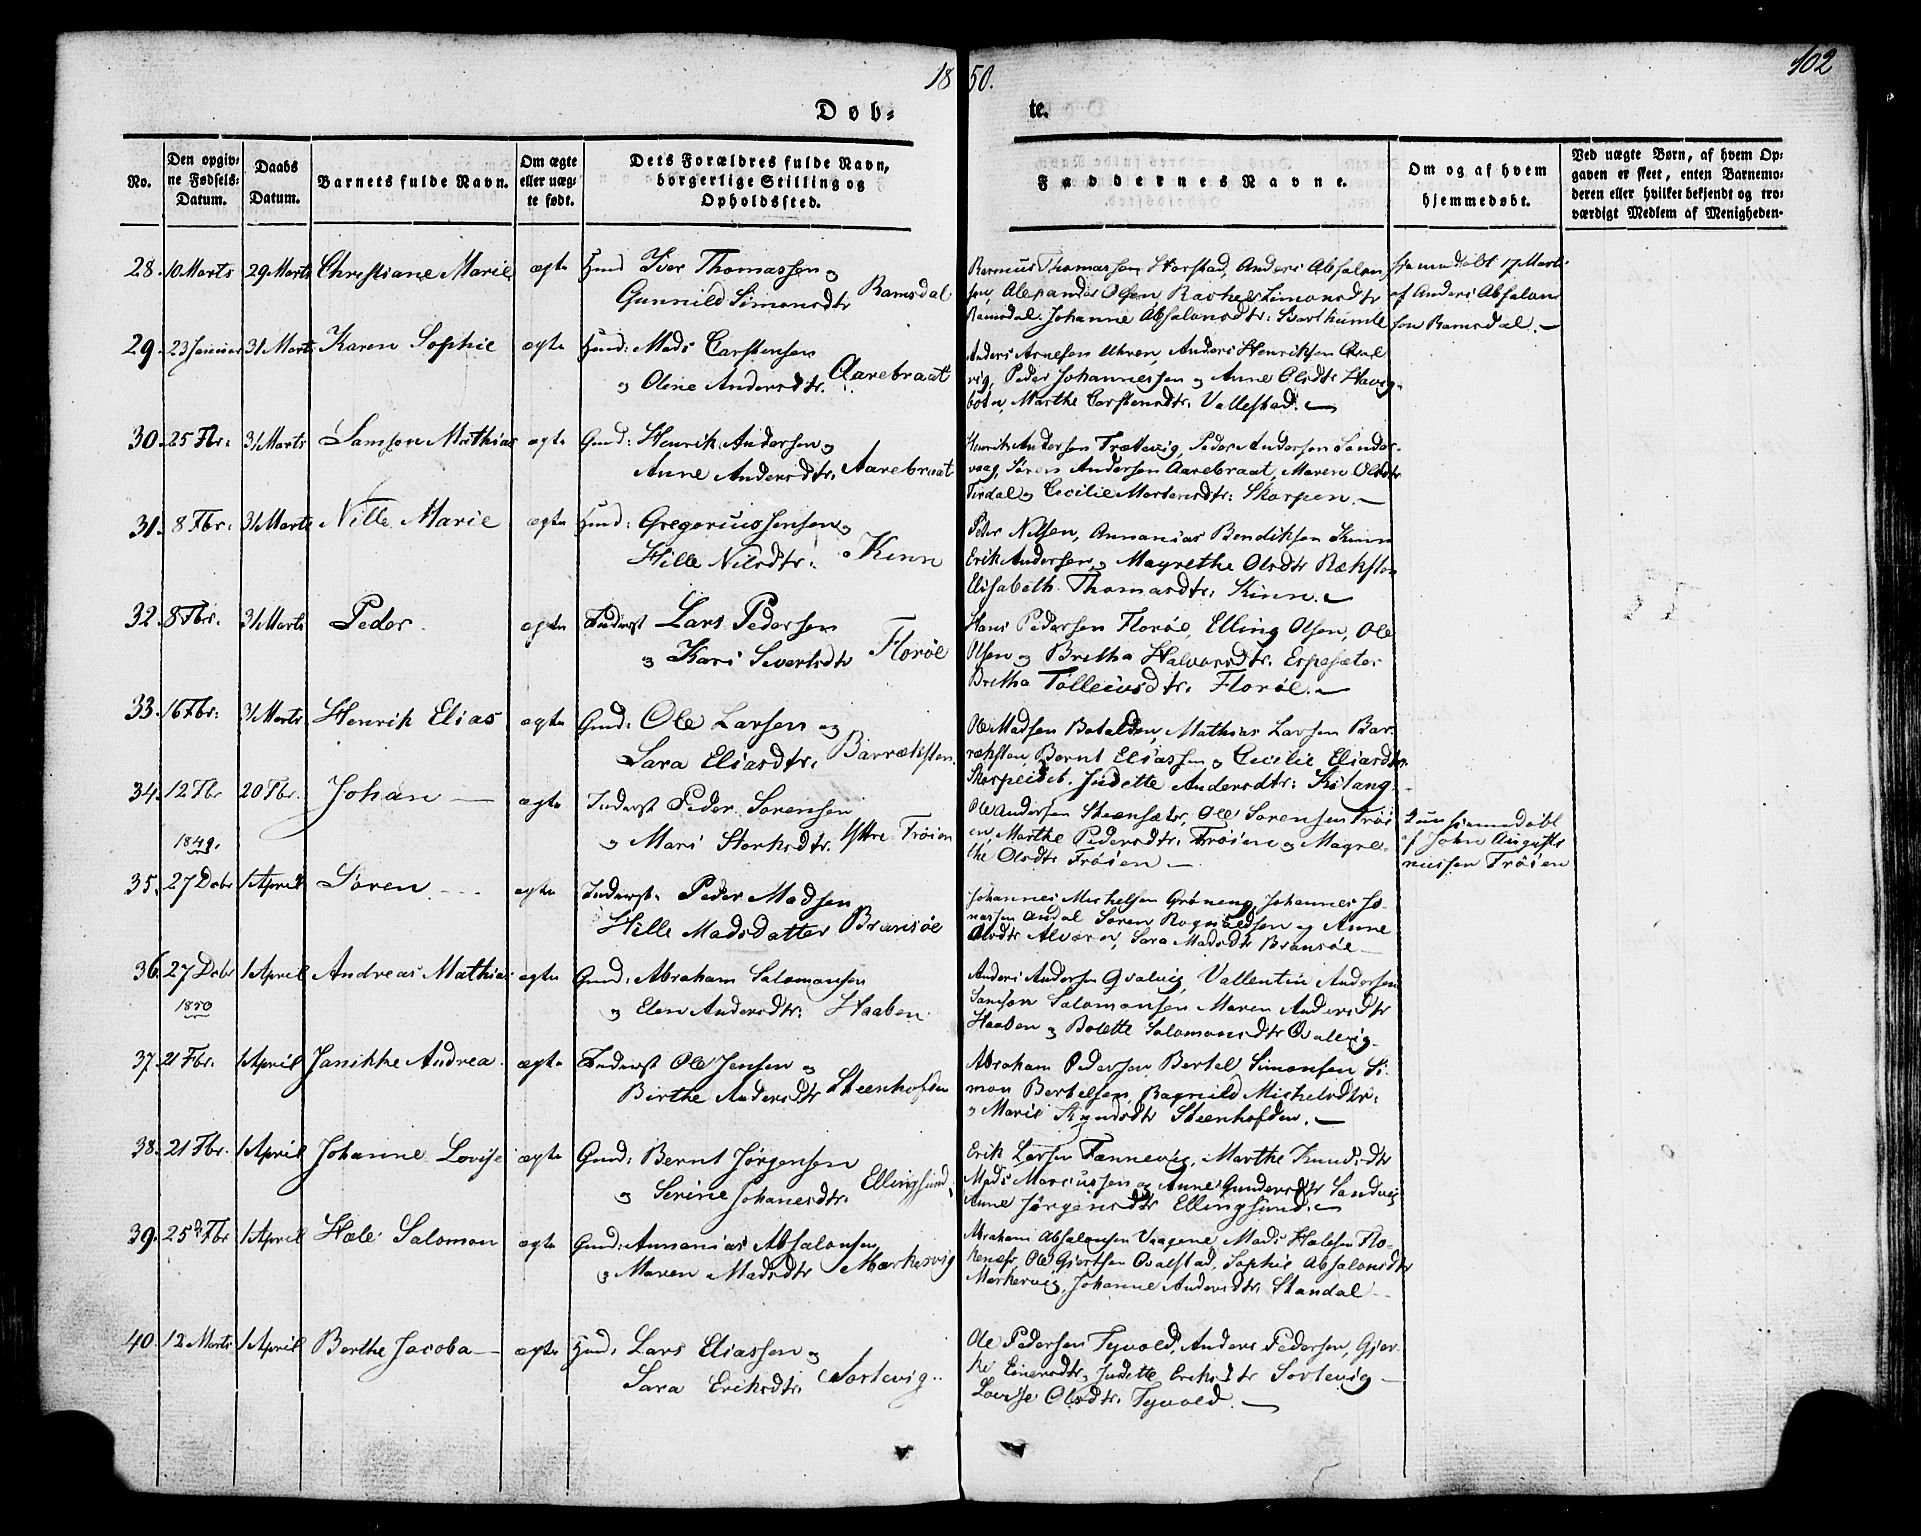 1850.
102
Døb-te.
No.
Den opgivne Fødsels-Datum.
Daabs Datum.
Barnets fulde Navn.
Om ægte eller uægte født.
Dets Forældres fulde Navn, borgerlige Stilling og Opholdssted.
Faddernes Navne.
Om og af hvem hjemmedøbt.
Ved uægte Børn, af hvem Opgaven er skeet, enten Barnemoderen eller hvilket bekjendt og troværdigt Medlem af Menigheden.
28. 10 Marts 29 Marts Christiane Marie ægte Huusd Iver Thomassen og
Gunnild Simonsdtr Ramsdal
Rasmus Thomassen Storstad, Anders Absalon-
sen, Alexander Olsen, Rachel Simonsdtr
Ramsdal. Johanne Absalonsdtr:
hjemmedøbt 17 Marts
af Anders Absalon
sen Ramsdal. —
29. 23 Januar 31 Marts Karen Sophie ægte Huusd: Mads Carstensen
og Oline Andersdtr. Aarebraat
Anders Arnesen Uhren, Anders Henriksen
Peder Johannessen og Anne Olsdtr
Marthe Carstensdtr: Vallestad. —
30. 25 Fbr: 31 Marts Samson Mathias ægte Gmd: Henrik Andersen og
Anne Andersdtr. Aarebraat
Henrik Andersen Trættevig, Peder Andersen Sandor-
vaag, Søren Andersen Aarebraat, Maren Olsdtr
Tirdal og Cecilie Mortensdtr: Skorpen. —
31. 8 Fbr: 31 Marts Nille Marie ægte Huusd: Gregorius Jensen og
Hille Nilsdtr: Kinn
Peder Nilsen, Annanias Bendiksen Kinn
Erik Andersen og Magrethe Olsdtr Ræksten
Elisabeth Thomasdtr: Kinn. —
32. 8 Fbr. 31 Marts Peder ægte Inderst Lars Pedersen
og Kari Sivertsdtr Florøe
Hans Pedersen Florøe, Elling Olsen, Ole
Olsen og Bretha Halvorsdtr: Espesæter
Bretha Tolleivsdtr. Florøe. —
33. 16 Fbr: 31 Marts Henrik Elias ægte Gmd: Ole Larsen og
Sara Eliasdtr. Barræksten.
Ole Madsen Batalden, Mathias Larsen Bar-
ræksten, Bernt Eliassen og Cecilie Eliasdtr.
Skorpeidet. Judette Andersdtr:
34. 12 Fbr 20 Fbr. Johan — ægte Inderst Peder Sørensen
og Mari Størksdtr. Yttre Trøien
Ole Andersen Steensæter, Ole Sørensen Trøi
en, Marthe Pedersdtr. Trøien og Magre-
the Olsdtr Trøien —
hjemmedøbt
af John Augusti
nussen Trøien
1849.
35. 27 Dcbr 1 April Søren. — ægte Inderst: Peder Madsen
Hille Madsdatter Bransøe
Johannes Michelsen Grøneng, Johannes Jo-
nassen Andal Søren Rognaldsen og Anne
Olsdtr Alværn, Sara Madsdtr Bransøe —
36. 27 Dcbr 1 April Andreas Mathias ægte Gmd: Abraham Salomonsen
og Elen Andersdtr: Haaben
Anders Andersen Qvalvig, Vallentin Andersen
Samson Salomonsen Maren Andersdtr
Haaben og Bolette Salomonsdtr Qvalvig
1850
37. 21 Fbr. 1 April Janikke Andrea. ægte Inderst Ole Jensen og
Birthe Andersdtr Steenhofden
Abraham Pedersen, Bertel Simonsen Si-
mon Bertelsen, Ragnild Michelsdtr:
og Marie Steenhofden. —
38. 21 Fbr. 1 April Johanne Lovise ægte Gmd: Bernt Jørgensen
og Serine Johanesdtr. Ellingsund.
Erik Larsen Fannevig, Marthe Knudsdtr
Mads Marcussen og Anne Gundersdtr Sandvig
Anne Jørgensdtr Ellingsund. —
39. 25 Fbr 1 April Hæle Salomon ægte Gmd: Annanias Absalonsen
og Maren Madsdtr Markevig
Abraham Absalonsen Vaagene Mads Hælesen Flo-
kenæs, Ole Gjertsen Qvalstad, Sophie Absalonsdtr
Markevig, Johanne Andersdtr. Standal —
40. 12 Marts 1 April Berthe Jacoba — ægte Huusd: Lars Eliassen og
Sara Eriksdtr. Sortevig.
Ole Pedersen Tyvold, Anders Pedersen, Gjer-
Einersdtr. Judette Eriksdtr Sortevig —
Lovise Olsdtr. Tyvold. —